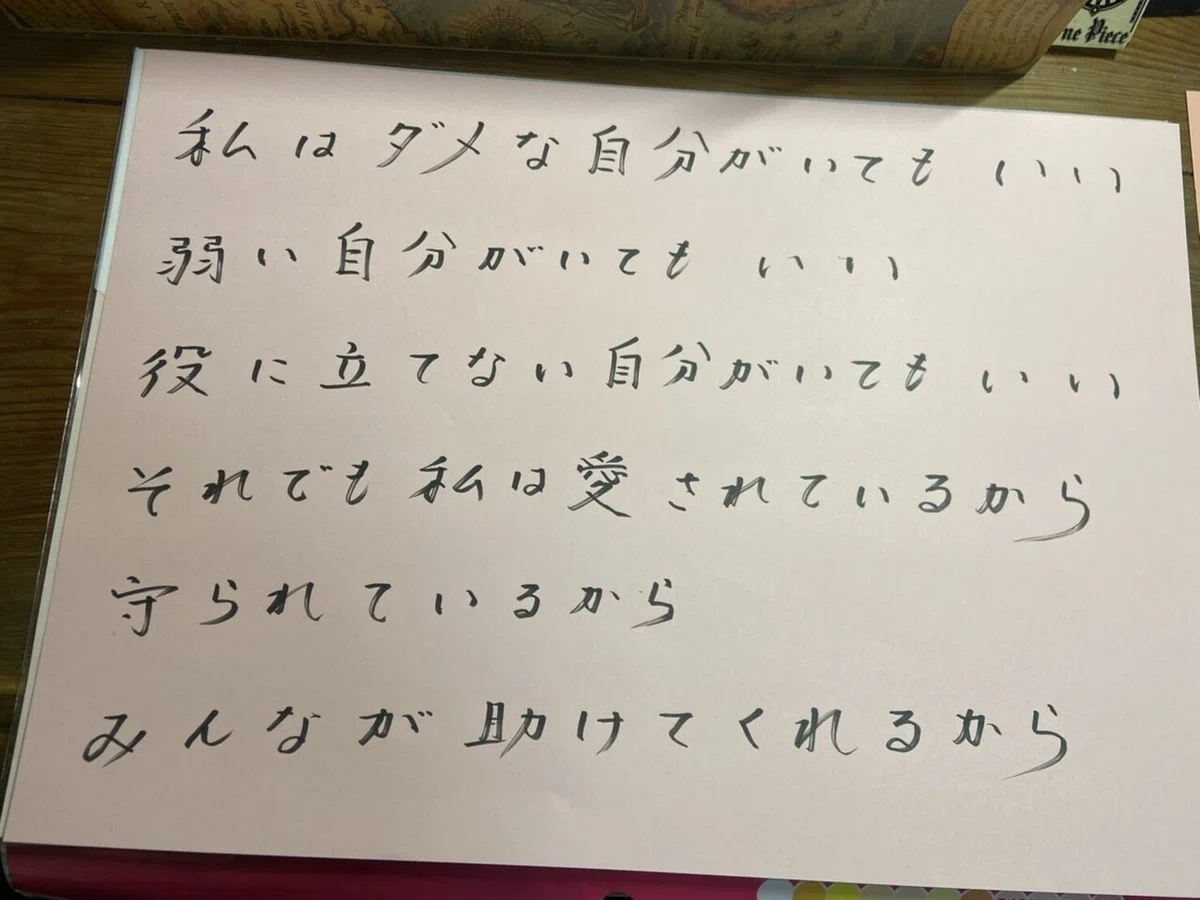 ne Piece
私は ダメな自分がいても いい
弱い自分がいても いい
役に立てない自分がいても いい
それでも 私は愛されているから
守られているから
みんなが助けてくれるから